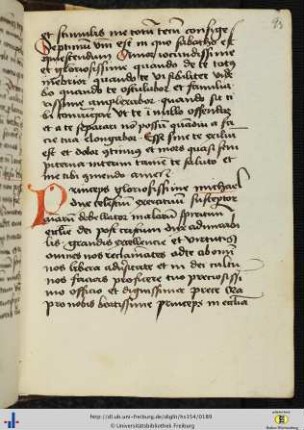 et stimulis me totum tecum confige
Septimum vero est in quo sabatho est
quiescendum O mi iocundissime
et gloriosissime quando de te totus
inebrior quando te visibiliter vide
bo quando te osculabor et familia
rissime amplexabor quando sic ti
bi coniungar Ut te in nullo offendere
et a te separari non possim quamdiu a fa
cie tua elongabor Esse sine te exilium
est et dolor continuus et mors quasi sem
piterna interim tamen te saluto et
me tibi commendo amen
Princeps gloriosissime michael
dux celestium exercituum susceptor
animarum debellator malorum spirituum
ecclesie dei post cristum dux admirabi
lis grandis excellencie et virtutis
omnes nos reclamantes ad te ab omni
nos libera aduersitate et in dei cultu
nos facias proficere tuo preciosissi
mo officio et dignissima prece Ora
pro nobis beatissime princeps in ecclesia
http://dl.ub.uni-freiburg.de/diglit/hs354/0189
© Universitätsbibliothek Freiburg